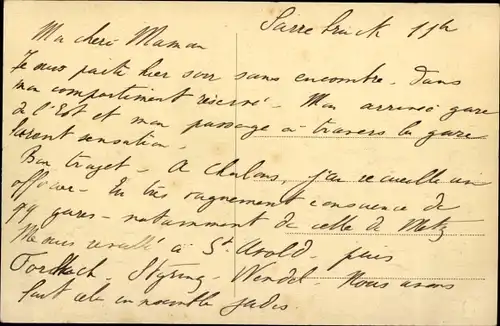 Sarrebruck 11h
Ma chère Maman
Je suis parti hier soir sans encombre. Dans
mon compartiment réservé. Mon arrivée gare
à l'Est et mon passage à travers la gare
firent sensation.
Bon trajet. A Chalons, j'ai recueilli un
En très vaguement conscience de
qq gares. notamment de celle de Metz
Me suis réveillé à St Avold, puis
Forbach. Styring. Wendel. Nous avons
fait cela ensemble jadis.